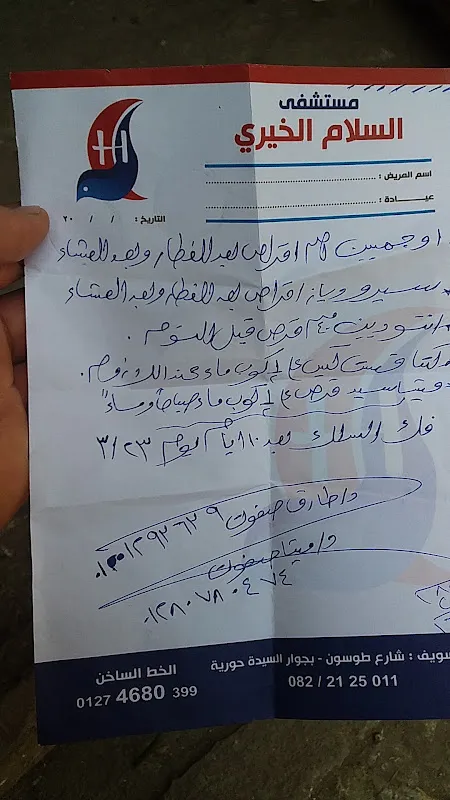 مستشفى
السلام الخيري
اسم المريض :
عيادة :
التاريخ : / / ٢٠
اوجمين اقراص بعد الفطار وبعد العشاء
اقراص بعد الفطار وبعد العشاء
انتودين ٤٠ قرص قبل النوم
كيس على كوب ماء عند اللزوم
قرص على كوب ماء صباحا ومساءً
فك السلك بعد ١٠ ايام يوم ٣/٢٣
د/طارق صفوت
د/مينا صفوت
٠١٢٨٠٧٨٠٤٧٤
سويف : شارع طوسون - بجوار السيدة حورية
082 / 21 25 011
الخط الساخن
0127 4680 399